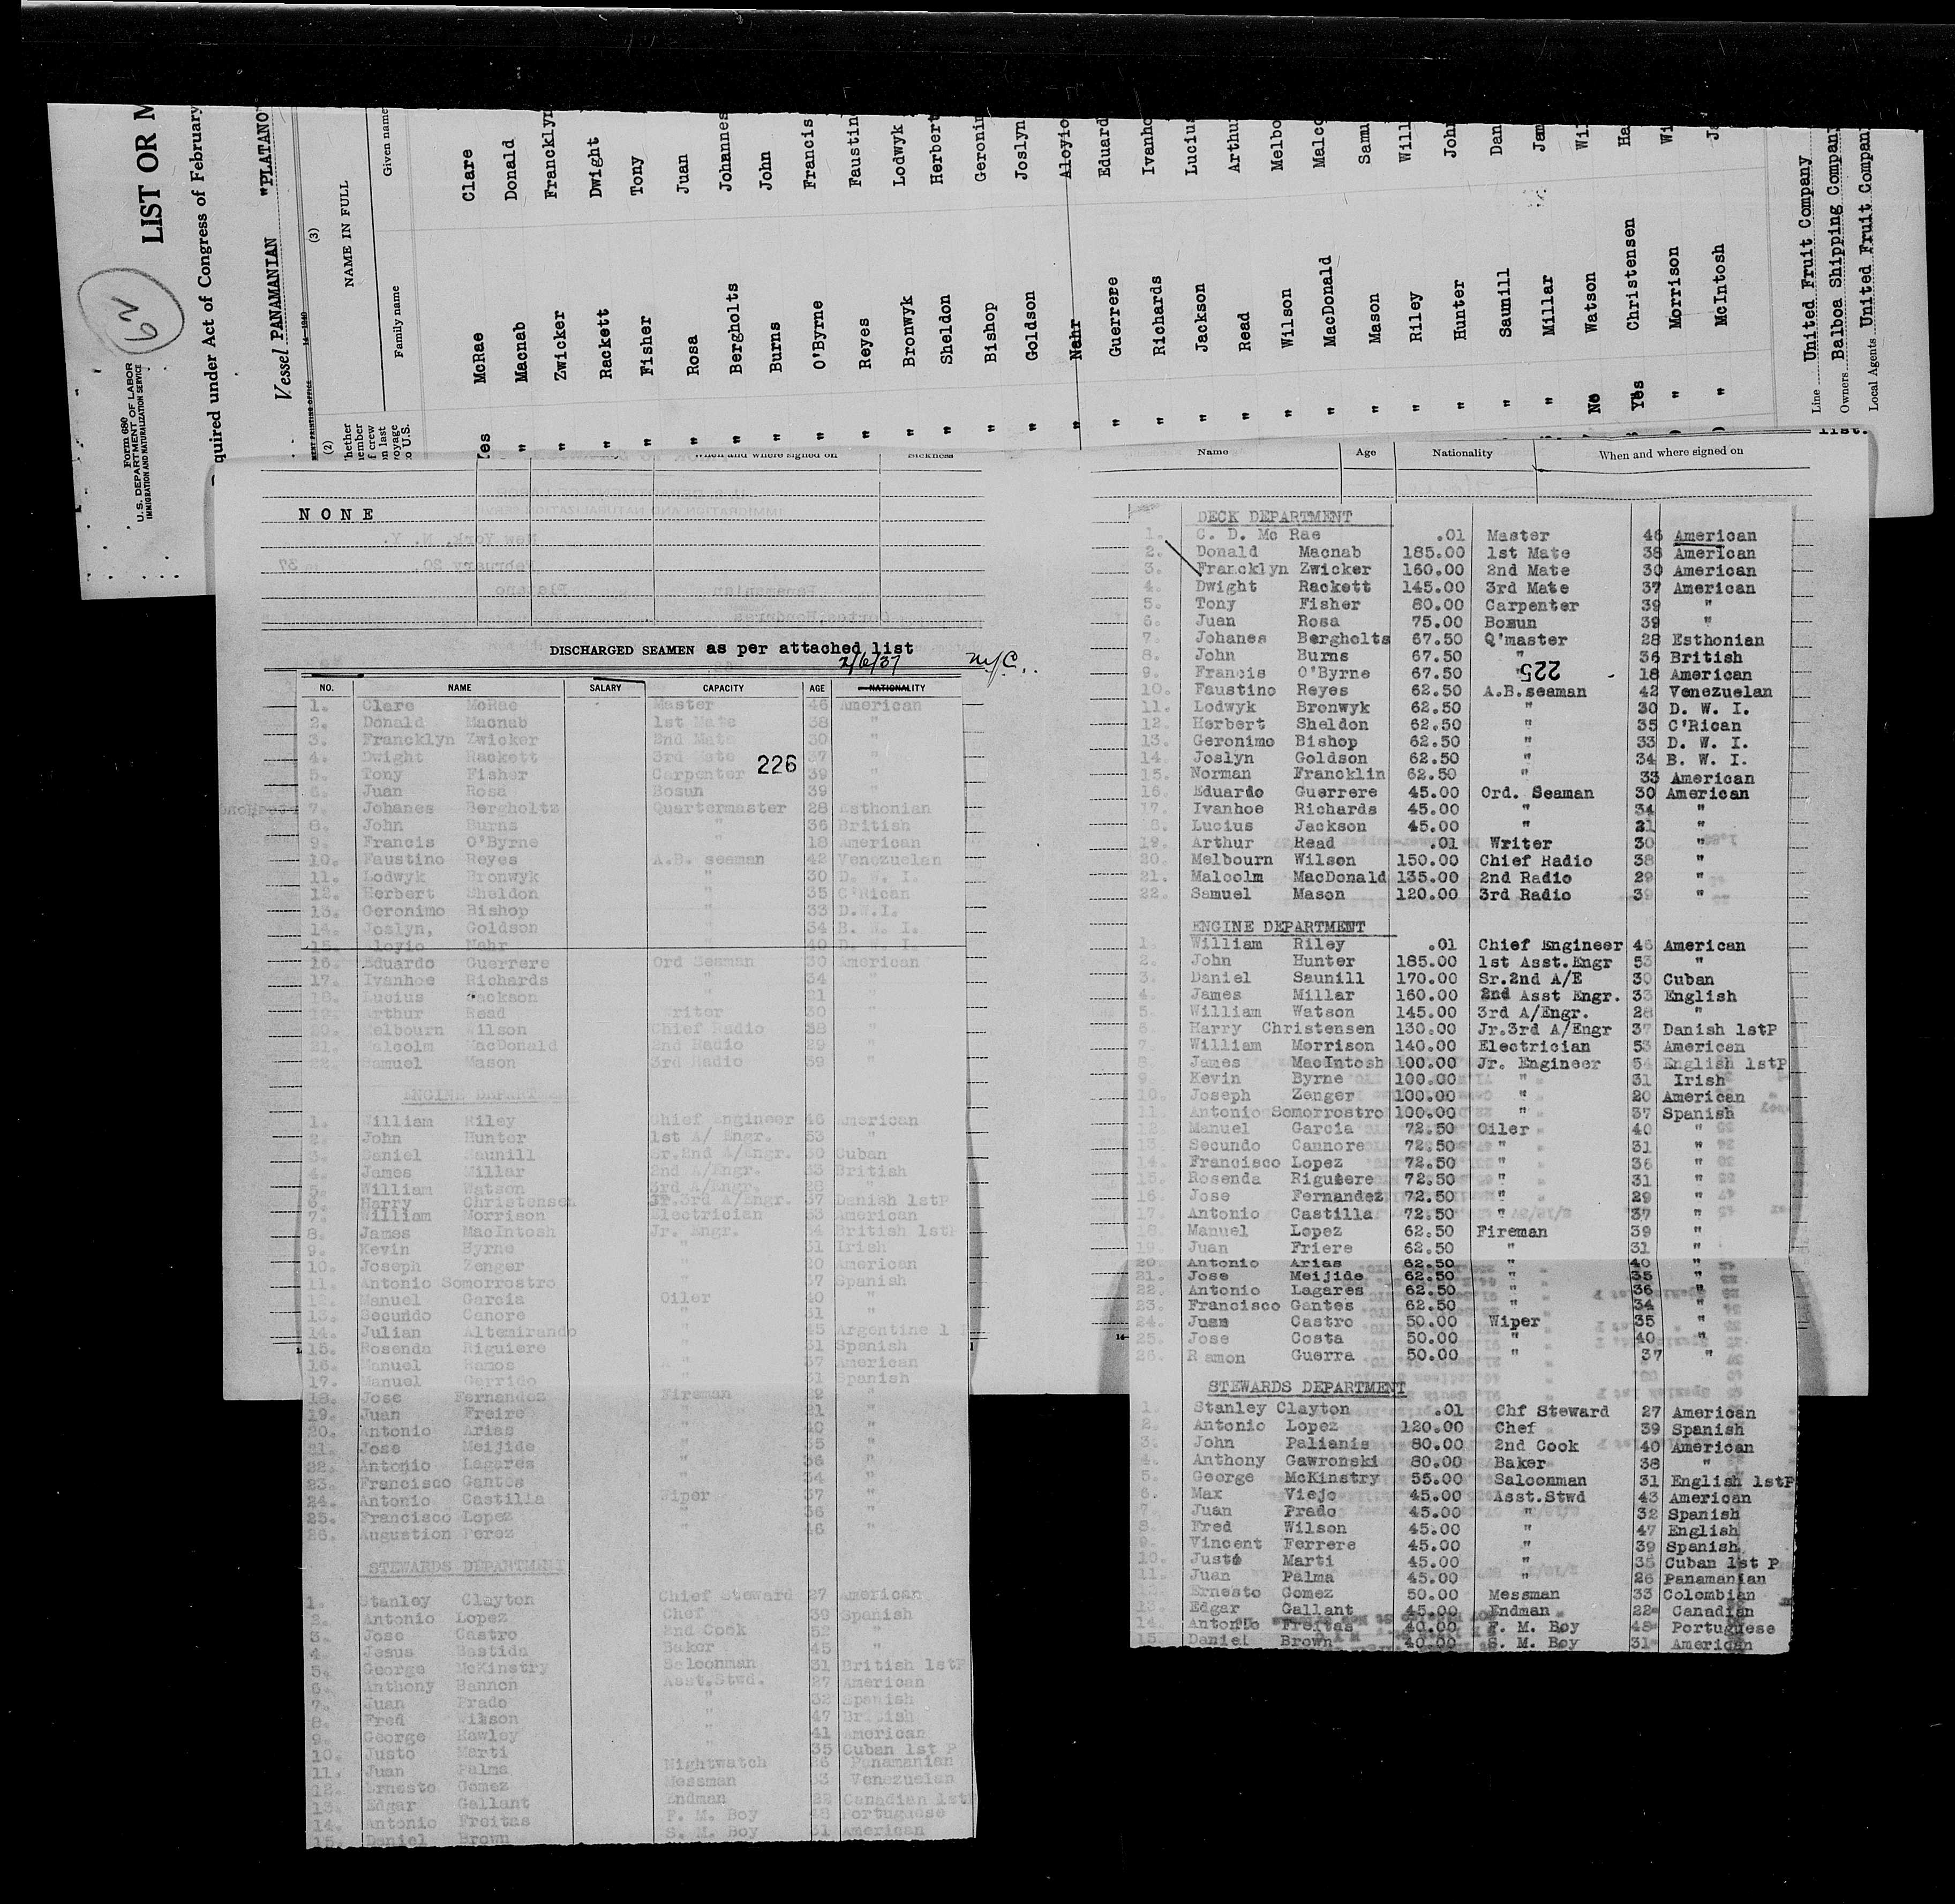 Form 680
U. S. DEPARTMENT OF LABOR
IMMIGRATION AND NATURALIZATION SERVICE
62
LIST OR M
quired under Act of Congress of February
Vessel PANAMANIAN "PLATANO"
(2) (3)
NAME IN FULL
Family name Given name
Yes McRae Clare
" Macnab Donald
" Zwicker Francklyn
" Rackett Dwight
" Fisher Tony
" Rosa Juan
" Bergholts Johannes
" Burns John
" O'Byrne Francis
" Reyes Faustin
" Bronwyk Lodwyk
" Sheldon Herbert
" Bishop Geronim
" Goldson Joslyn
" Nahr Aloyio
" Guerrere Eduard
" Richards Ivanho
" Jackson Lucius
" Read Arthu
" Wilson Melbo
" MacDonald Malco
" Mason Samu
" Riley Will
" Hunter John
" Saunill Dan
" Millar Jam
No Watson Wil
Yes Christensen Ha
" Morrison Wi
" McIntosh Ja
Line United Fruit Company
Owners Balboa Shipping Company
Local Agents United Fruit Company
list.
When and where signed on Sickness
NONE
DISCHARGED SEAMEN as per attached list
2/6/37 NYC.
NO. NAME SALARY CAPACITY AGE NATIONALITY
1. Clare McRae Master 46 American
2. Donald Macnab 1st Mate 38 "
3. Francklyn Zwicker 2nd Mate 30 "
4. Dwight Rackett 3rd Mate 37 "
226
5. Tony Fisher Carpenter 39 "
6. Juan Rosa Bosun 39 "
7. Johanes Bergholtz Quartermaster 28 Esthonian
8. John Burns " 36 British
9. Francis O'Byrne 18 American
10. Faustino Reyes A.B. seaman 42 Venezuelan
11. Lodwyk Bronwyk " 30 D. W. I.
12. Herbert Sheldon " 35 C'Rican
13. Geronimo Bishop " 33 D.W.I.
14. Joslyn, Goldson 34 B. W. I.
15. Aloyio Nahr " 40 D. W. I.
16. Eduardo Guerrere Ord Seaman 30 American
17. Ivanhoe Richards " 34 "
18. Lucius Jackson " 21
19. Arthur Read Writer 30 "
20. Melbourn Wilson Chief Radio 38 "
21. Malcolm MacDonald 2nd Radio 29 "
22. Samuel Mason 3rd Radio 39 "
ENGINE DEPARTME
1. William Riley Chief Engineer 46 American
2. John Hunter 1st A/ Engr. 53 "
3. Daniel Saunill Sr.2nd A/Engr. 30 Cuban
4. James Millar 2nd A/Engr. 33 British
5. William Watson 3rd A/Engr. 28 "
6. Harry Christensen Jr.3rd A/Engr. 37 Danish 1stP
7. William Morrison Electrician 53 American
8. James MacIntosh Jr. Engr. 54 British 1stP
9. Kevin Byrne " 31 Irish
10. Joseph Zenger 20 American
11. Antonio Somorrostro " 37 Spanish
12. Manuel Garcia Oiler 40 "
13. Secundo Canore " 31 "
14. Julian Altemirando " 45 Argentine 1 P
15. Rosenda Riguiere " 31 Spanish
16. Manuel Ramos " 37 American
17. Manuel Gerrido " 31 Spanish
18. Jose Fernandez Fireman 29 "
19. Juan Freire " 21 "
20. Antonio Arias " 40 "
21. Jose Meijide " 35 "
22. Antonio Lagares " 36 "
23. Francisco Gantes " 34 "
24. Antonio Castilla Wiper 37 "
25. Francisco Lopez " 36 "
26. Augustion Perez " 46 "
STEWARDS DEPARTMENT
1. Stanley Clayton Chief Steward 27 American
2. Antonio Lopez Chef 39 Spanish
3. Jose Castro 2nd Cook 52 "
4. Jesus Bastida Baker 45 "
5. George McKinstry Saloonman 31 British 1stP
6. Anthony Bannon Asst.Stwd. 27 American
7. Juan Prado " 32 Spanish
8. Fred Wilson " 47 British
9. George Hawley " 41 American
10. Justo Marti 35 Cuban 1st P
11. Juan Palma Nightwatch 26 Panamanian
12. Ernesto Gomez Messman 33 Venezuelan
13. Edgar Gallant Endman 22 Canadian 1st
14. Antonio Freitas F. M. Boy 48 Portuguese
15. Daniel Brown S. M. Boy 31 American
Name Age Nationality When and where signed on
DECK DEPARTMENT
1. C. D. Mc Rae .01 Master 46 American
2. Donald Macnab 185.00 1st Mate 38 American
3. Francklyn Zwicker 160.00 2nd Mate 30 American
4. Dwight Rackett 145.00 3rd Mate 37 American
5. Tony Fisher 80.00 Carpenter 39 "
6. Juan Rosa 75.00 Bosun 39 "
7. Johanes Bergholts 67.50 Q'master 28 Esthonian
8. John Burns 67.50 " 36 British
225
9. Francis O'Byrne 67.50 18 American
10. Faustino Reyes 62.50 A.B.seaman 42 Venezuelan
11. Lodwyk Bronwyk 62.50 " 30 D. W. I.
12. Herbert Sheldon 62.50 " 35 C'Rican
13. Geronimo Bishop 62.50 " 33 D. W. I.
14. Joslyn Goldson 62.50 " 34 B. W. I.
15. Norman Francklin 62.50 " 33 American
16. Eduardo Guerrere 45.00 Ord. Seaman 30 American
17. Ivanhoe Richards 45.00 " 34 "
18. Lucius Jackson 45.00 " 21 "
19. Arthur Read .01 Writer 30 "
20. Melbourn Wilson 150.00 Chief Radio 38 "
21. Malcolm MacDonald 135.00 2nd Radio 29 "
22. Samuel Mason 120.00 3rd Radio 39 "
ENGINE DEPARTMENT
1. William Riley .01 Chief Engineer 46 American
2. John Hunter 185.00 1st Asst.Engr 53 "
3. Daniel Saunill 170.00 Sr.2nd A/E 30 Cuban
4. James Millar 160.00 2nd Asst Engr. 33 English
5. William Watson 145.00 3rd A/Engr. 28 "
6. Harry Christensen 130.00 Jr.3rd A/Engr 37 Danish 1stP
7. William Morrison 140.00 Electrician 53 American
8. James MacIntosh 100.00 Jr. Engineer 54 English 1stP
9. Kevin Byrne 100.00 " 31 Irish
10. Joseph Zenger 100.00 " 20 American
11. Antonio Somorrostro 100.00 " 37 Spanish
12. Manuel Garcia 72.50 Oiler 40 "
13. Secundo Cannore 72.50 " 31 "
14. Francisco Lopez 72.50 " 36 "
15. Rosenda Riguiere 72.50 " 31 "
16. Jose Fernandez 72.50 " 29 "
17. Antonio Castilla 72.50 " 37 "
18. Manuel Lopez 62.50 Fireman 39 "
19. Juan Friere 62.50 " 31 "
20. Antonio Arias 62.50 " 40 "
21. Jose Meijide 62.50 " 35 "
22. Antonio Lagares 62.50 " 36 "
23. Francisco Gantes 62.50 " 34 "
24. Juan Castro 50.00 Wiper 35 "
25. Jose Costa 50.00 " 40 "
26. Ramon Guerra 50.00 " 37 "
STEWARDS DEPARTMENT
1. Stanley Clayton .01 Chf Steward 27 American
2. Antonio Lopez 120.00 Chef 39 Spanish
3. John Palianis 80.00 2nd Cook 40 American
4. Anthony Gawronski 80.00 Baker 38 "
5. George McKinstry 55.00 Saloonman 31 English 1stP
6. Max Viejo 45.00 Asst.Stwd 43 American
7. Juan Prado 45.00 " 32 Spanish
8. Fred Wilson 45.00 " 47 English
9. Vincent Ferrere 45.00 " 39 Spanish
10. Justo Marti 45.00 " 35 Cuban 1st P
11. Juan Palma 45.00 " 26 Panamanian
12. Ernesto Gomez 50.00 Messman 33 Colombian
13. Edgar Gallant 45.00 Endman 22 Canadian
14. Antonio Freitas 40.00 F. M. Boy 48 Portuguese
15. Daniel Brown 40.00 S. M. Boy 31 American